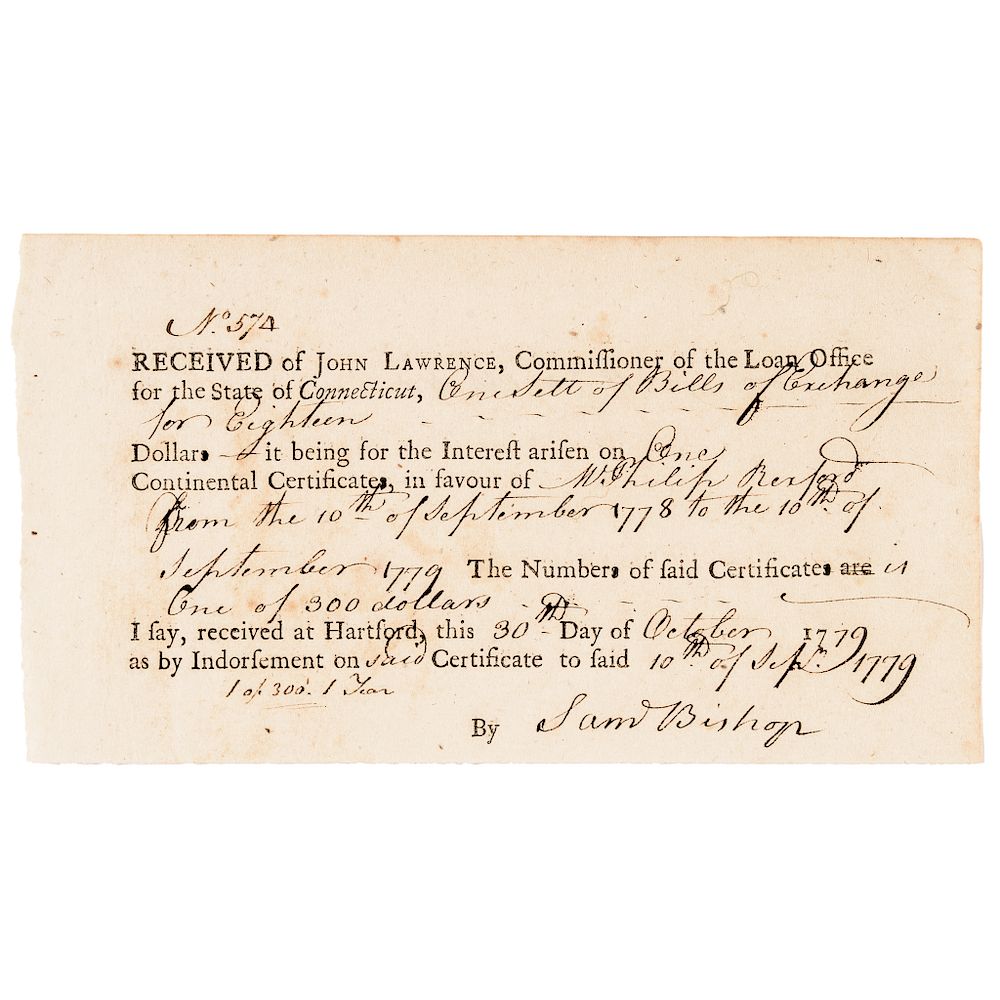 No. 574
RECEIVED of JOHN LAWRENCE, Commiſſioner of the Loan Office
for the State of Connecticut, One Sett of Bills of Exchange
for Eighteen
Dollars it being for the Intereſt ariſen on One
Continental Certificates, in favour of Mr. Philip Rexford
From the 10th of September 1778 to the 10th of
September 1779 The Numbers of ſaid Certificates are is
One of 300 dollars
I ſay, received at Hartford, this 30th Day of October 1779
as by Indorſement on said Certificate to ſaid 10th of Sepr. 1779
1 of 300. 1 Year
By Saml Bishop